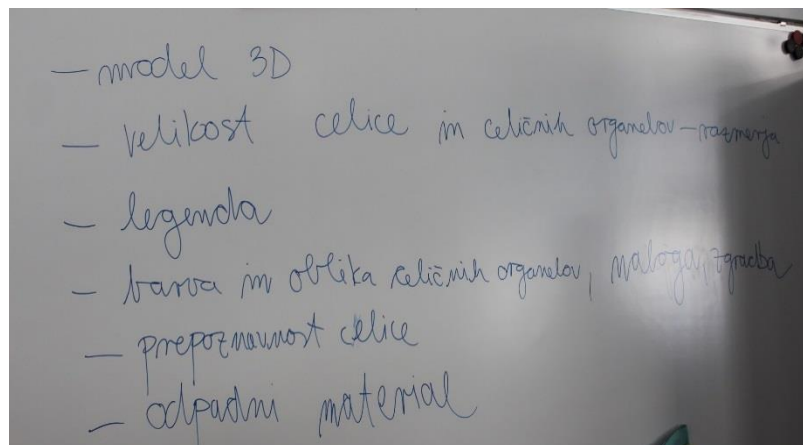 – model 3D
– velikost celice in celičnih organelov – razmerja
– legenda
– barva in oblika celičnih organelov, naloga, zgradba
– prepoznavnost celice
– odpadni material